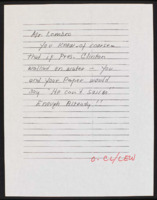 Mr. Lawson
You know of course
that if Pres. Clinton
walked on water - you
and your paper would
say "He can't swim"
Enough Already!!